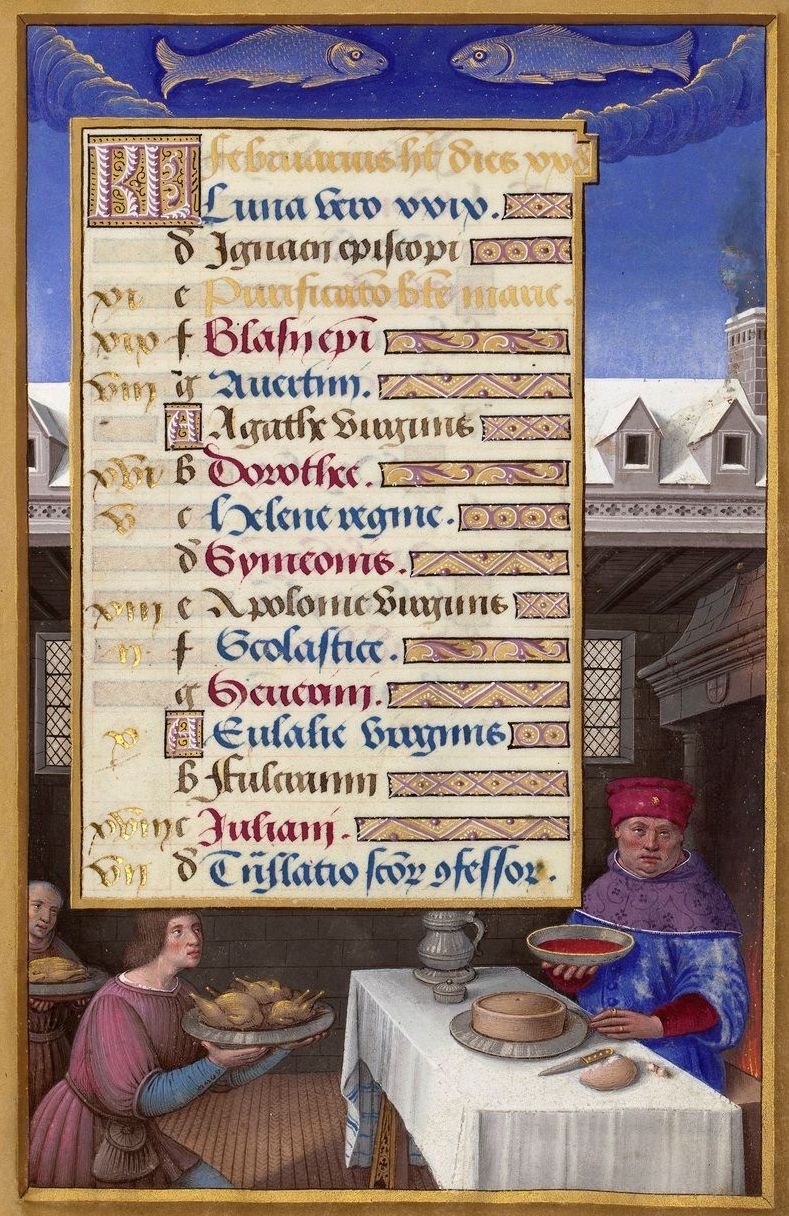 KL februarius ht dies xxviii
Luna vero xxix.
d Ignacii episcopi
xi e Purificatio bte marie.
xix f Blasii epi
viii g Auertini.
A Agathe virginis
xvi b Dorothee.
v c Helene regine.
d Symeonis.
xiii e Apolonie virginis
ii f Scolastice.
g Seueri.
x A Eulalie virginis
b Fulcranni
xviii c Juliani.
vii d Tnslatio scor confessor.